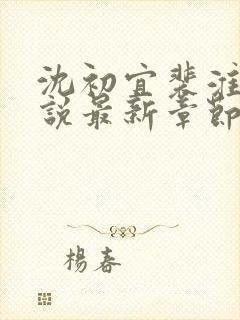 沈初宜裴淮
說最新章節
楊春